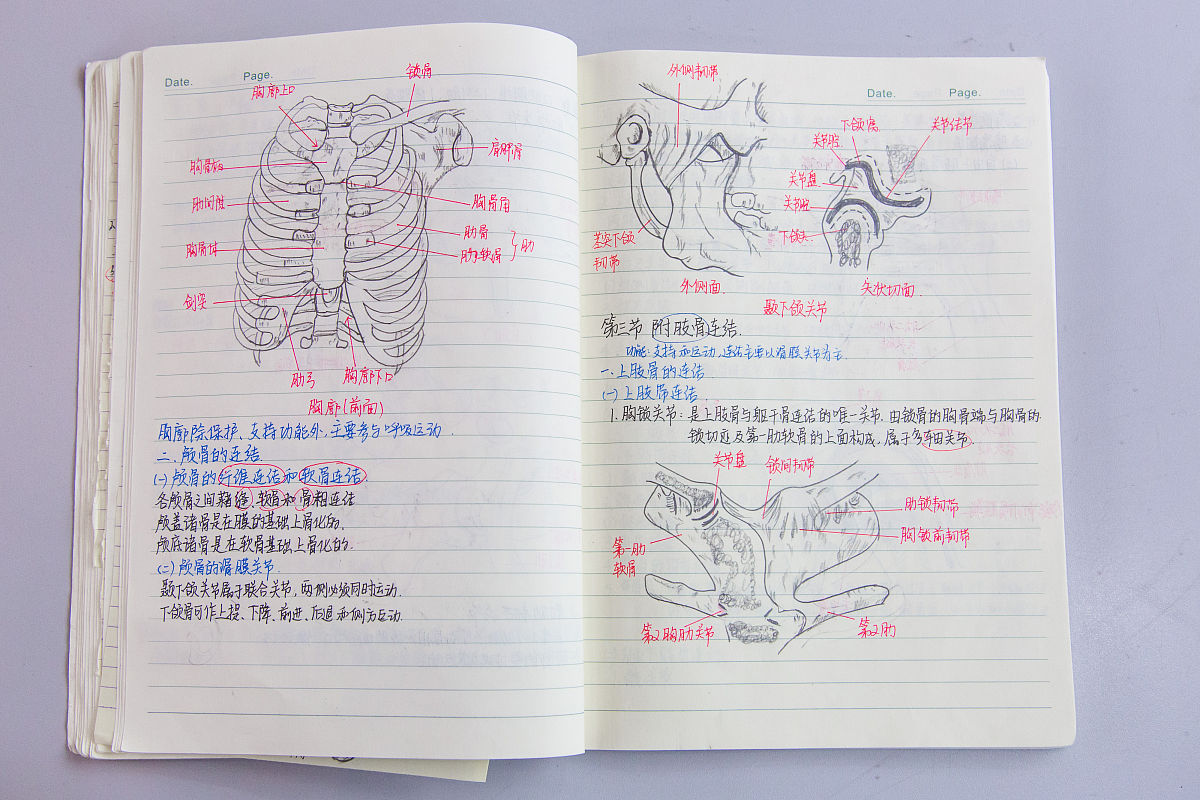 Date. Page.
锁骨
胸廓上口
肩胛骨
胸骨柄
胸骨角
肋间隙
肋骨
肋软骨
肋
胸骨体
剑突
肋弓
胸廓下口
胸廓(前面)
胸廓除保护、支持功能外,主要参与呼吸运动.
二.颅骨的连结.
(一)颅骨的纤维连结和软骨连结.
各颅骨之间藉缝、软骨和骨相连结
颅盖诸骨是在膜的基础上骨化的.
颅底诸骨是在软骨基础上骨化的.
(二)颅骨的滑膜关节.
颞下颌关节属于联合关节,两侧必须同时运动.
下颌骨可作上提、下降、前进、后退和侧方运动.
Date. Page.
外侧韧带
下颌窝
关节结节
关节腔
关节盘
关节腔
下颌头
茎突下颌
韧带
外侧面.
矢状切面.
颞下颌关节
第三节 附肢骨连结.
功能:支持和运动,连结主要以滑膜关节为主.
一.上肢骨的连结
(一)上肢带连结.
1.胸锁关节:是上肢骨与躯干骨连结的唯一关节.由锁骨的胸骨端与胸骨的
锁切迹及第一肋软骨的上面构成,属于多轴关节.
关节盘
锁间韧带
肋锁韧带
胸锁前韧带
第一肋
软骨
第2胸肋关节
第2肋